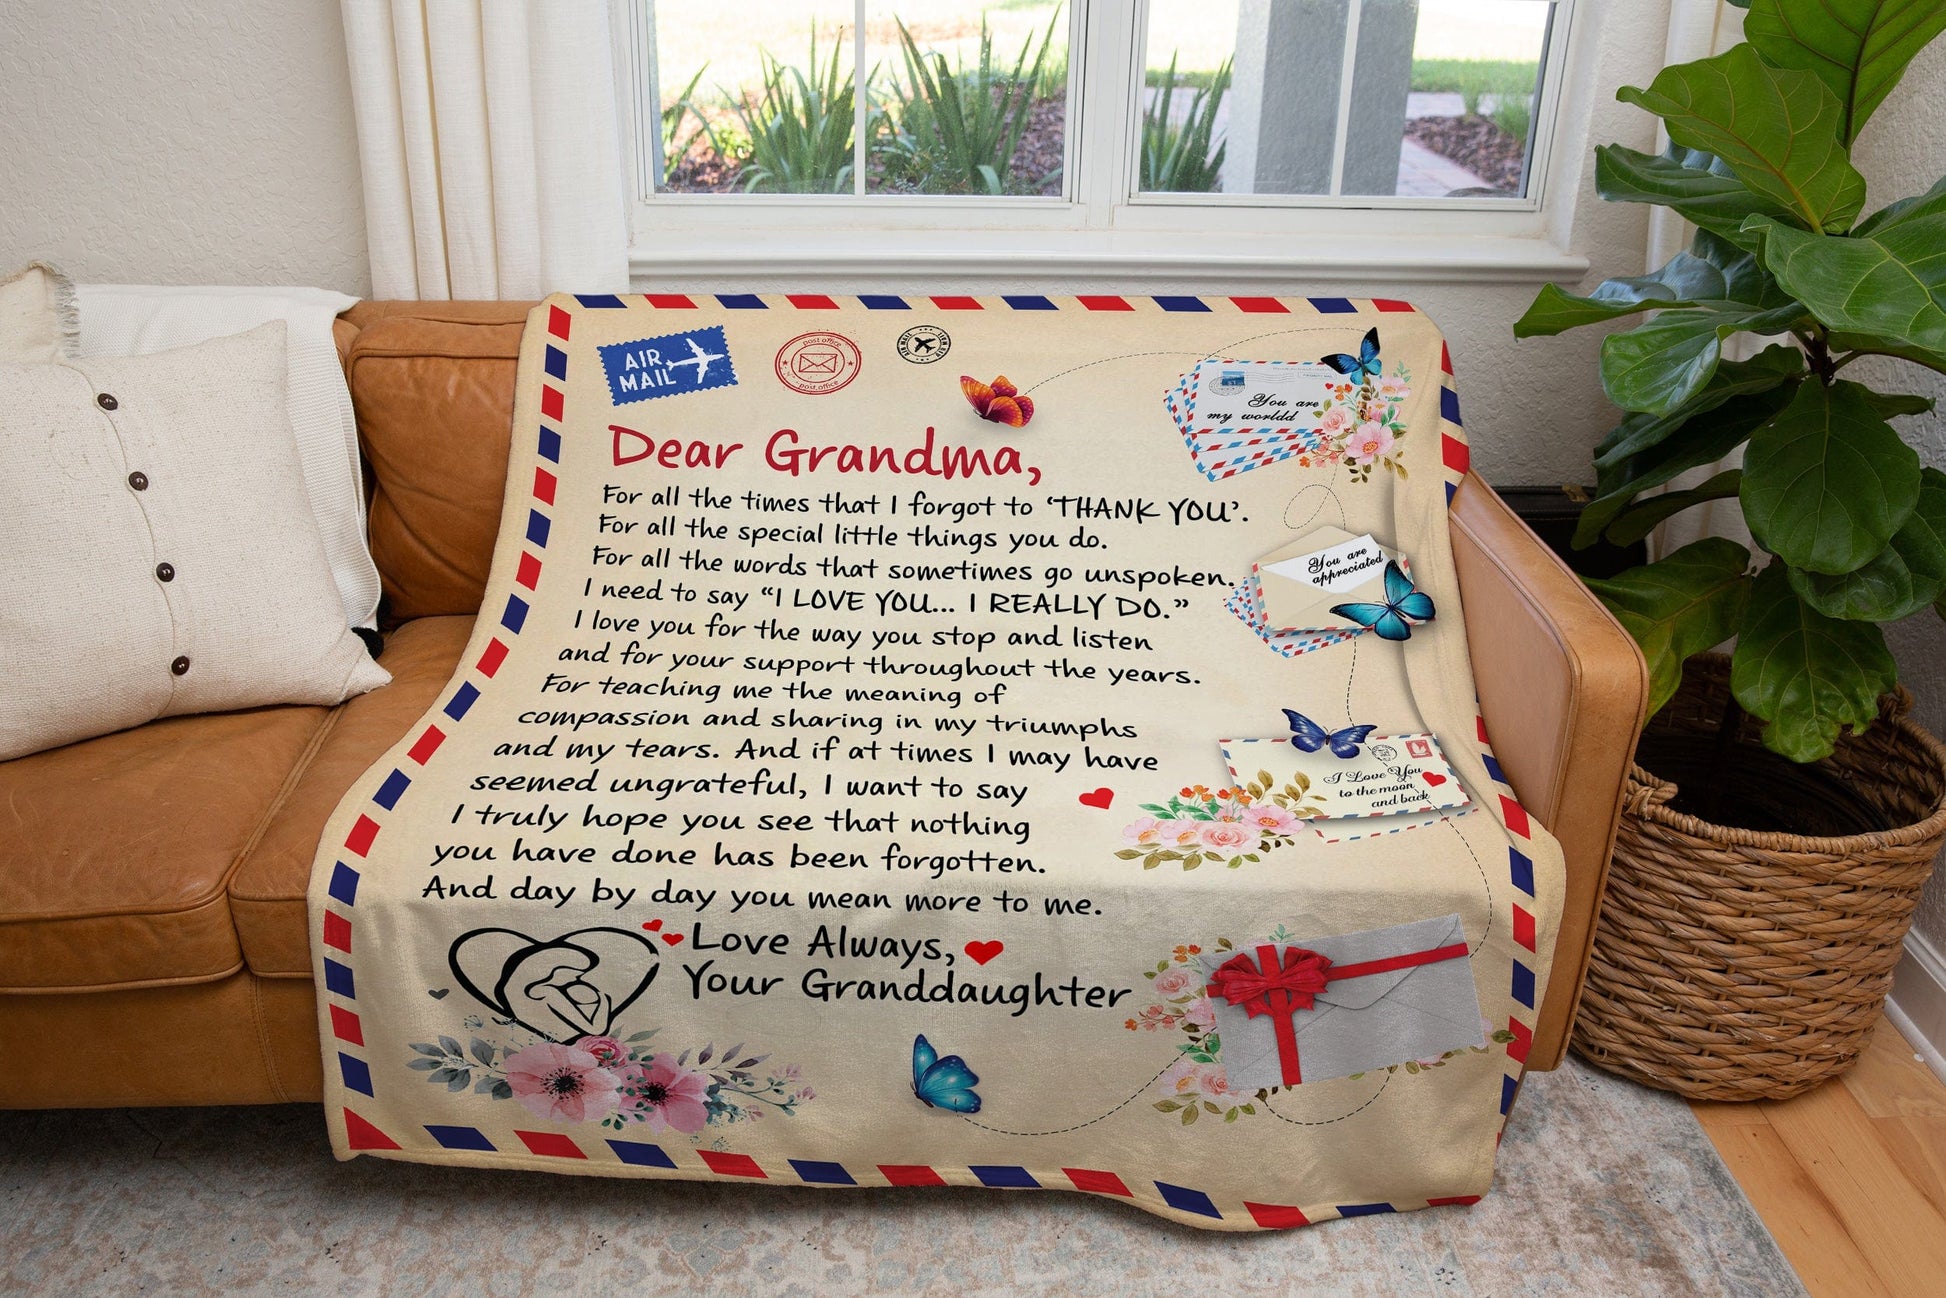 AIR
MAIL
post office
post office
AIR MAIL
You are
my worldd
Dear Grandma,
For all the times that I forgot to ‘THANK YOU’.
For all the special little things you do.
For all the words that sometimes go unspoken.
I need to say “I LOVE YOU... I REALLY DO.”
I love you for the way you stop and listen
and for your support throughout the years.
For teaching me the meaning of
compassion and sharing in my triumphs
and my tears. And if at times I may have
seemed ungrateful, I want to say
I truly hope you see that nothing
you have done has been forgotten.
And day by day you mean more to me.
Love Always,
Your Granddaughter
You are
appreciated
I Love You
to the moon
and back